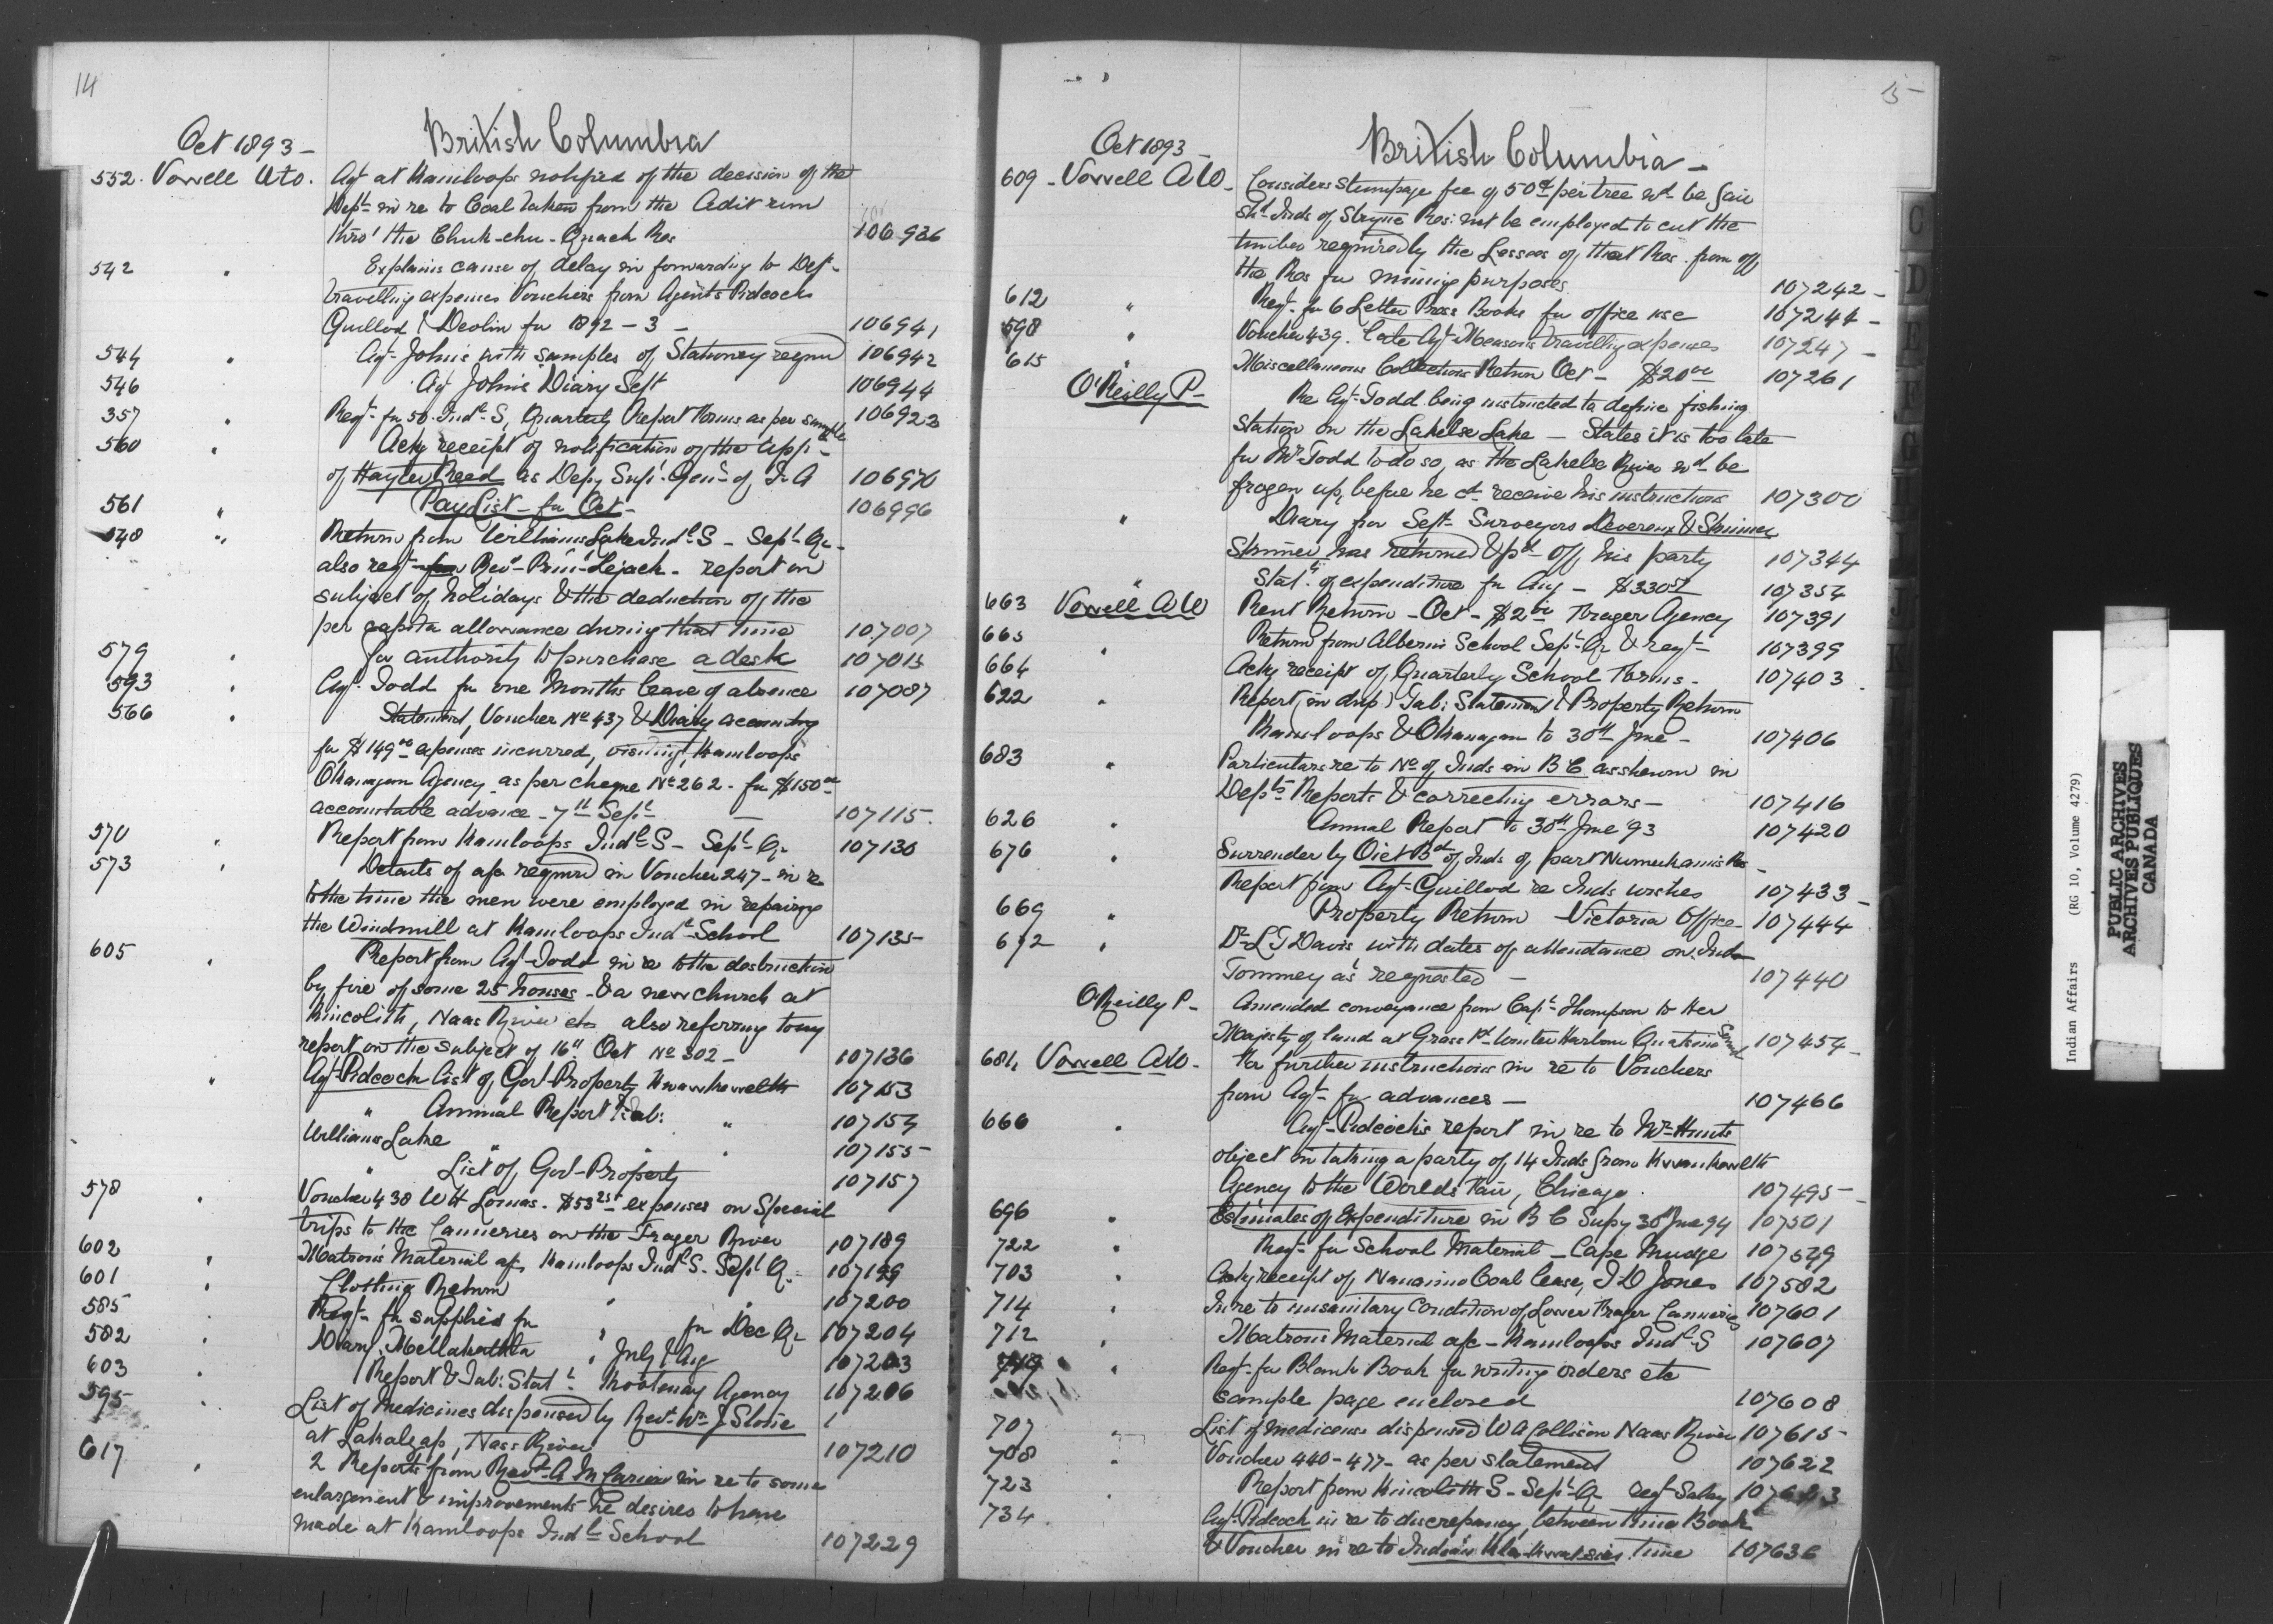 14
Oct 1893 - British Columbia
552. Vowell A W. Agt at Kamloops notified of the decision of the
Dept in re to Coal taken from the Adit run
thro' the Chuk-chu-Quack Res 106936
542 " Explains cause of delay in forwarding to Dept
travelling expenses Vouchers from Agents Pidcock
Guillod & Devlin for 1892-3 - 106941
544 " Agt Johns with samples of Stationery reqd 106942
546 Agt Johns Diary Sept 106944
357 " Reqt for 50 Indl S, Quarterly Report Forms as per sample 106923
560 " Ackg receipt of notification of the appt
of Hayter Reed as Depy Supt Genl of I A 106970
561 " Pay List - for Oct - 106996
548 " Return from Williams Lake Indl S - Sept Qr -
also reqt Revd Prin Lejack - report on
subject of holidays & the deduction of the
per capita allowance during that time 107007
579 " for authority to purchase a desk 107013
593 " Agt Todd for one months leave of absence 107087
566 " Statement, Voucher No 437 & Diary accounting
for $149.00 expenses incurred, visiting Kamloops
Okanagan Agency as per cheque No 262. for $150.00
accountable advance - 7th Sept - 107115.
570 " Report from Kamloops Indl S - Sept Qr 107130
573 " Details of a/c required in Voucher 247 - in re
to the time the men were employed in repairing
the Windmill at Kamloops Indl School 107135
605 " Report from Agt Todd in re to the destruction
by fire of some 25 houses - & a new church at
Kincolith, Naas River etc also referring to my
report on the subject of 16th Oct No 302 - 107136
" Agt Pidcock list of Govt Property Kwawkewelth 107153
" Annual Report & Tab: " 107154
Williams Lake " " 107155
" List of Govt Property 107157
578 " Voucher 438 W H Lomas. $53.25 expenses on Special
trips to the Canneries on the Frazer River 107189
602 " Matron's Material a/c Kamloops Indl S. Sept Qr. 107199
601 " Clothing Return " " 107200
585 " Reqt for supplies for " for Dec Qr 107204
582 " Diary. Metlakahtla " July & Aug 107203
603 " Report & Tab: Statt Kootenay Agency 107206
595 " List of Medicines dispensed by Revd Wm J Stone
at Lakalzap, Nass River 107210
617 " 2 Reports from Revd A M Carion in re to some
enlargement & improvements he desires to have
made at Kamloops Indl School 107229
15
Oct 1893 - British Columbia -
609 - Vowell A W - Considers stumpage fee of 50cts per tree wd be fair
Shd Inds of Stryne Res: not be employed to cut the
timber required by the Lessees of that Res. from off
the Res for mining purposes 107242 -
612 " Reqt for 6 Letter Press Books for office use 107244 -
598 " Voucher 439. late Agt Meason's travelling expenses 107247 -
615 " Miscellaneous Collections Return Oct - $20.00 107261
O'Reilly P - Re Agt Todd being instructed to define fishing
Station on the Lakelse Lake - States it is too late
for Mr Todd to do so, as the Lakelse River wd be
frozen up, before he cd receive his instructions 107300
" Diary for Sept Surveyors Devereux & Skinner
Skinner has returned & pd off his party 107344
" Statt of expenditure for Aug - $330 107354
663 Vowell A W Rent Return - Oct - $2.00 Frazer Agency 107391
665 " Return from Alberni School Sept Qr & reqt 107399
664 Ackg receipt of Quarterly School Forms - 107403
622 " Report (in dup) Tab: Statement & Property Return
Kamloops & Okanagan to 30th June - 107406
683 " Particulars re to No of Inds in B C as shewn in
Depts Reports & correcting errors - 107416
626 " Annual Report to 30th June '93 107420
676 " Surrender by Oiet Bd of Inds of part Numukamis Res -
Report from Agt Guillod re Inds wishes 107433 -
669 " Property Return Victoria Office - 107444
692 " Dr L T Davis with dates of attendance on Indn
Tommey as requested - 107440
O'Reilly P - Amended conveyance from Capt Thompson to Her
Majesty of land at Grass Pt Winter Harbour Quatsino Sound 107454 -
681, Vowell A W. For further instructions in re to Vouchers
from Agts for advances - 107466
660 " Agt Pidcock's report in re to Mr Hunts
object in taking a party of 14 Inds from Kwawkewlth
Agency to the Worlds Fair, Chicago. 107495 -
696 " Estimates of Expenditure in B C Supy 30th June 94 107501
722 " Reqt for School Material - Cape Mudge 107549
703 " Ackg receipt of Nanaimo Coal lease, T D Jones 107582
714 " In re to unsanitary Condition of Lower Frazer Canneries 107601
712 " Matrons Material a/c - Kamloops Indl S 107607
" Reqt for Blank Book for writing orders etc
sample page enclosed 107608
707 " List of medicines dispensed W A Collison Naas River 107615 -
708 " Voucher 440-477 - as per statement 107622
723 " Report from Kincolith S - Sept Qr reqt Salary
734 Agt Pidcock in re to discrepancy between time Book
& Voucher in re to Indian time 107636
C
D
E
F
G
J
K
Indian Affairs (RG 10, Volume 4279)
PUBLIC ARCHIVES
ARCHIVES PUBLIQUES
CANADA